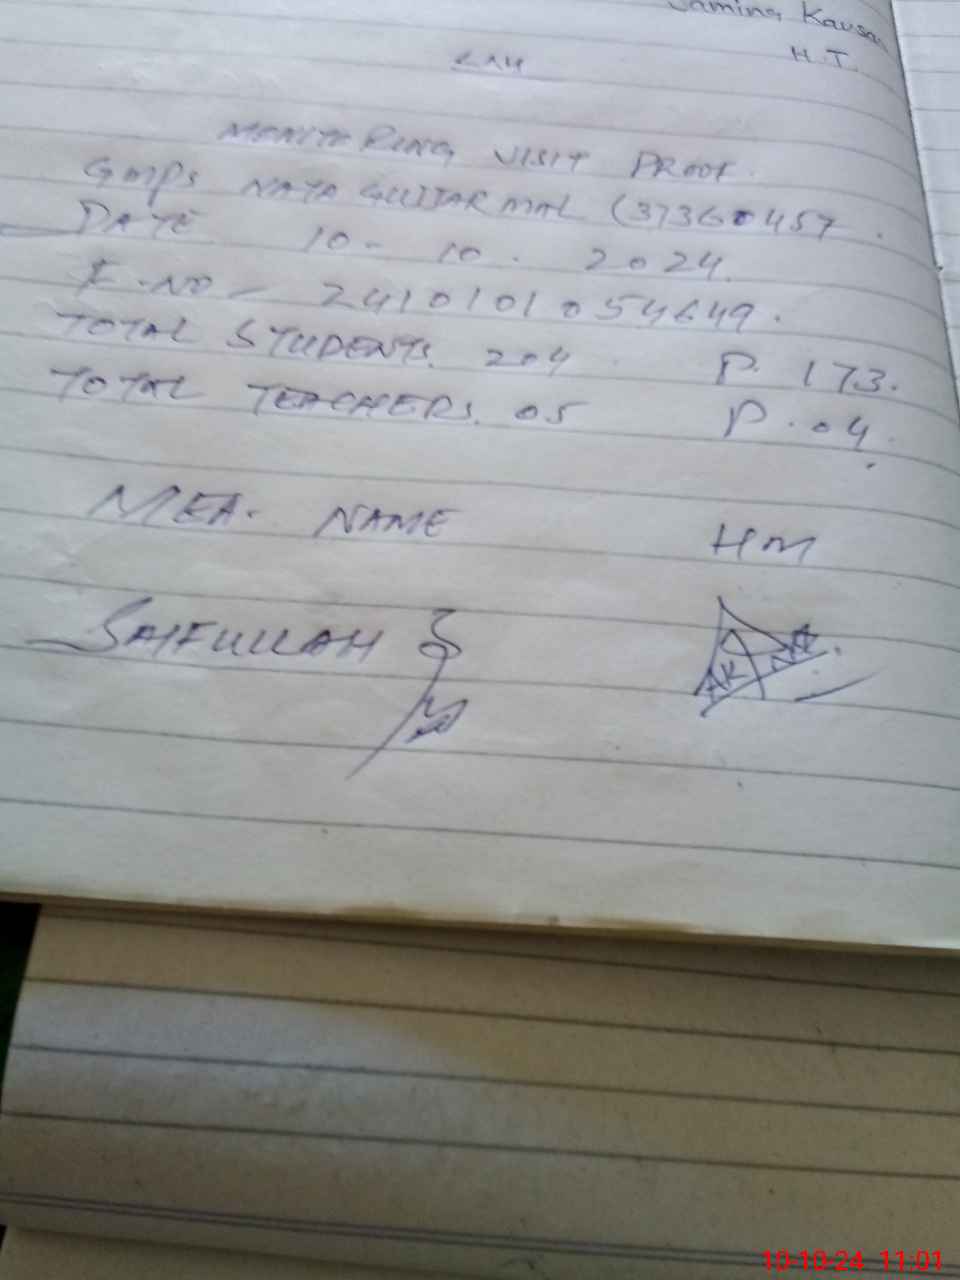 Jamina Kausa
H.T.
MONITERING VISIT PROOF.
GMPS NATA GUJJAR MAL (37360457.
DATE 10-10.2024.
E.NO - 2410101054649.
TOTAL STUDENTS. 204 P. 173.
TOTAL TEACHERS. 05 P.04.
MEA. NAME HM
SAIFULLAH
10-10-24 11:01